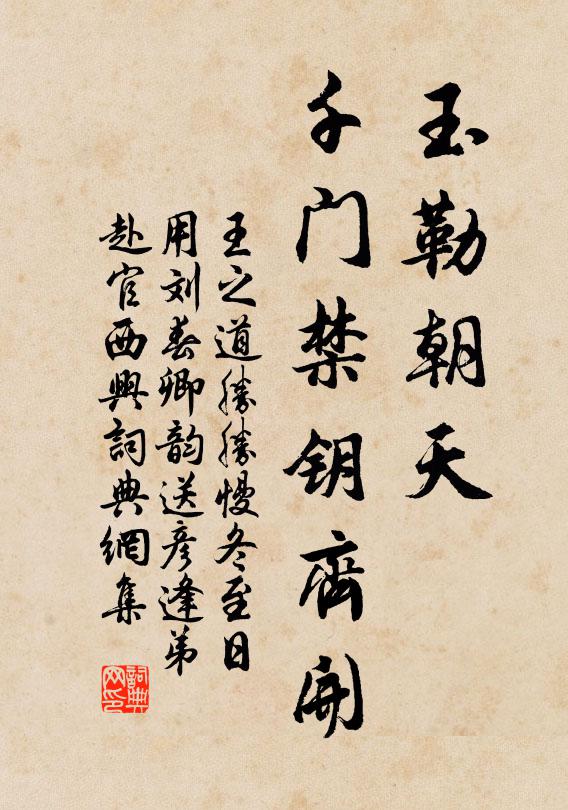 玉勒朝天
千门禁钥齊開
王之道勝勝慢冬至日
用刘春卿韵送彦逢弟
赴官西興詞典網集
詞典网印